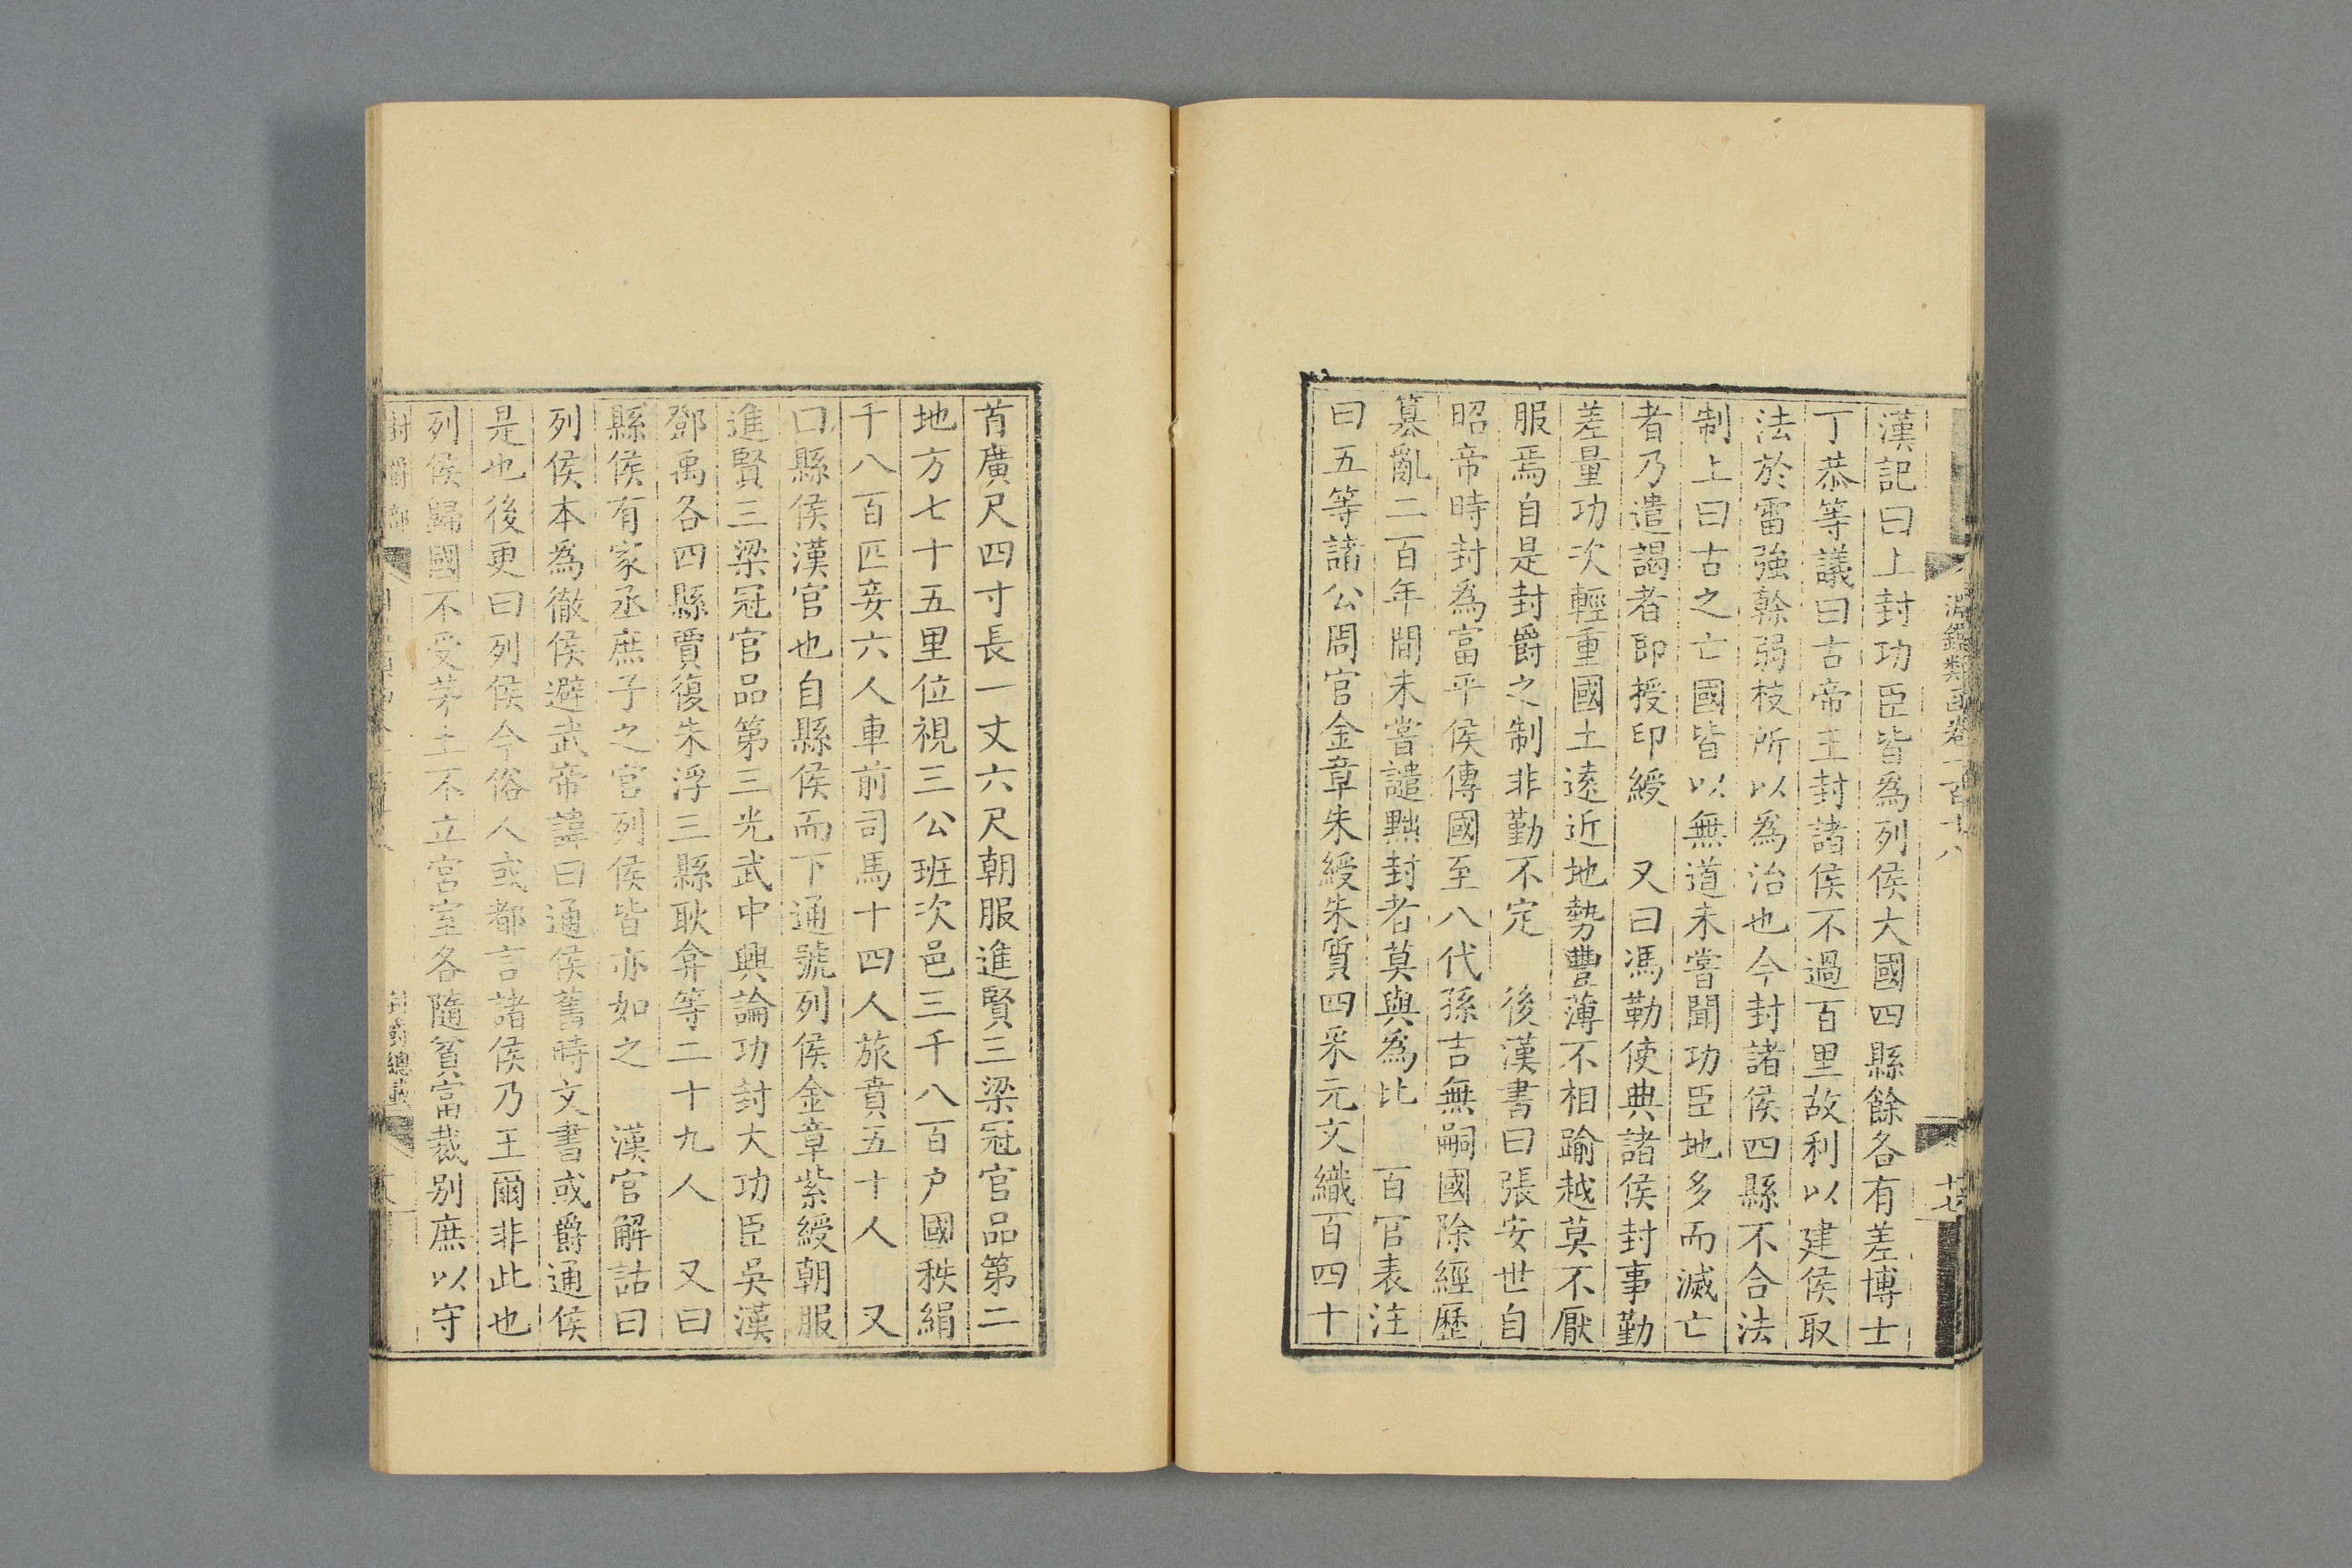 淵鑑類函卷一百十八
十七
漢記曰上封功臣皆爲列侯大國四縣餘各有差博士
丁恭等議曰古帝王封諸侯不過百里故利以建侯取
法於雷強幹弱枝所以爲治也今封諸侯四縣不合法
制上曰古之亡國皆以無道未嘗聞功臣地多而滅亡
者乃遣謁者即授印綬　又曰馮勤使典諸侯封事勤
差量功次輕重國土遠近地勢豐薄不相踰越莫不厭
服焉自是封爵之制非勤不定　後漢書曰張安世自
昭帝時封爲富平侯傳國至八代孫吉無嗣國除經歷
篡亂二百年間未嘗譴黜封者莫與爲比　百官表注
曰五等諸公周官金章朱綬朱質四采元文織百四十
首廣尺四寸長一丈六尺朝服進賢三梁冠官品第二
地方七十五里位視三公班次邑三千八百户國秩絹
千八百匹妾六人車前司馬十四人旅賁五十人　又
口縣侯漢官也自縣侯而下通號列侯金章紫綬朝服
進賢三梁冠官品第三光武中興論功封大功臣吳漢
鄧禹各四縣賈復朱浮三縣耿弇等二十九人　又曰
縣侯有家丞庶子之官列侯皆亦如之　漢官解詁曰
列侯本爲徹侯避武帝諱曰通侯舊時文書或爵通侯
是也後更曰列侯今俗人或都言諸侯乃王爾非此也
列侯歸國不受茅土不立宮室各隨貧富裁別庶以守
封爵部
封爵總載